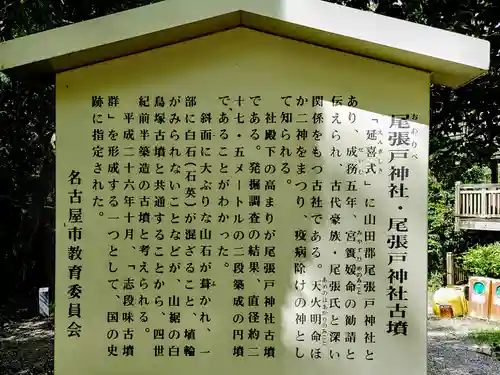 おわりべ
尾張戸神社・尾張戸神社古墳
えんぎしき
「延喜式」に山田郡尾張戸神社と
せいむ みやずひめのみこと
あり、成務五年、宮簀媛命の勧請と
伝えられ、古代豪族・尾張氏と深い
関係をもつ古社である。天火明命ほ
あめのほあかりのみこと
か二神をまつり、疫病除けの神とし
て知られる。
社殿下の高まりが尾張戸神社古墳
である。発掘調査の結果、直径約二
十七・五メートルの二段築成の円墳
であることがわかった。
斜面に大ぶりな山石が葺かれ、一
ふ
部に白石(石英)が混ざること、埴輪
がみられないことなどが、山裾の白
鳥塚古墳と共通することから、四世
紀前半築造の古墳と考えられる。
平成二十六年十月、「志段味古墳
群」を形成する一つとして、国の史
跡に指定された。
名古屋市教育委員会